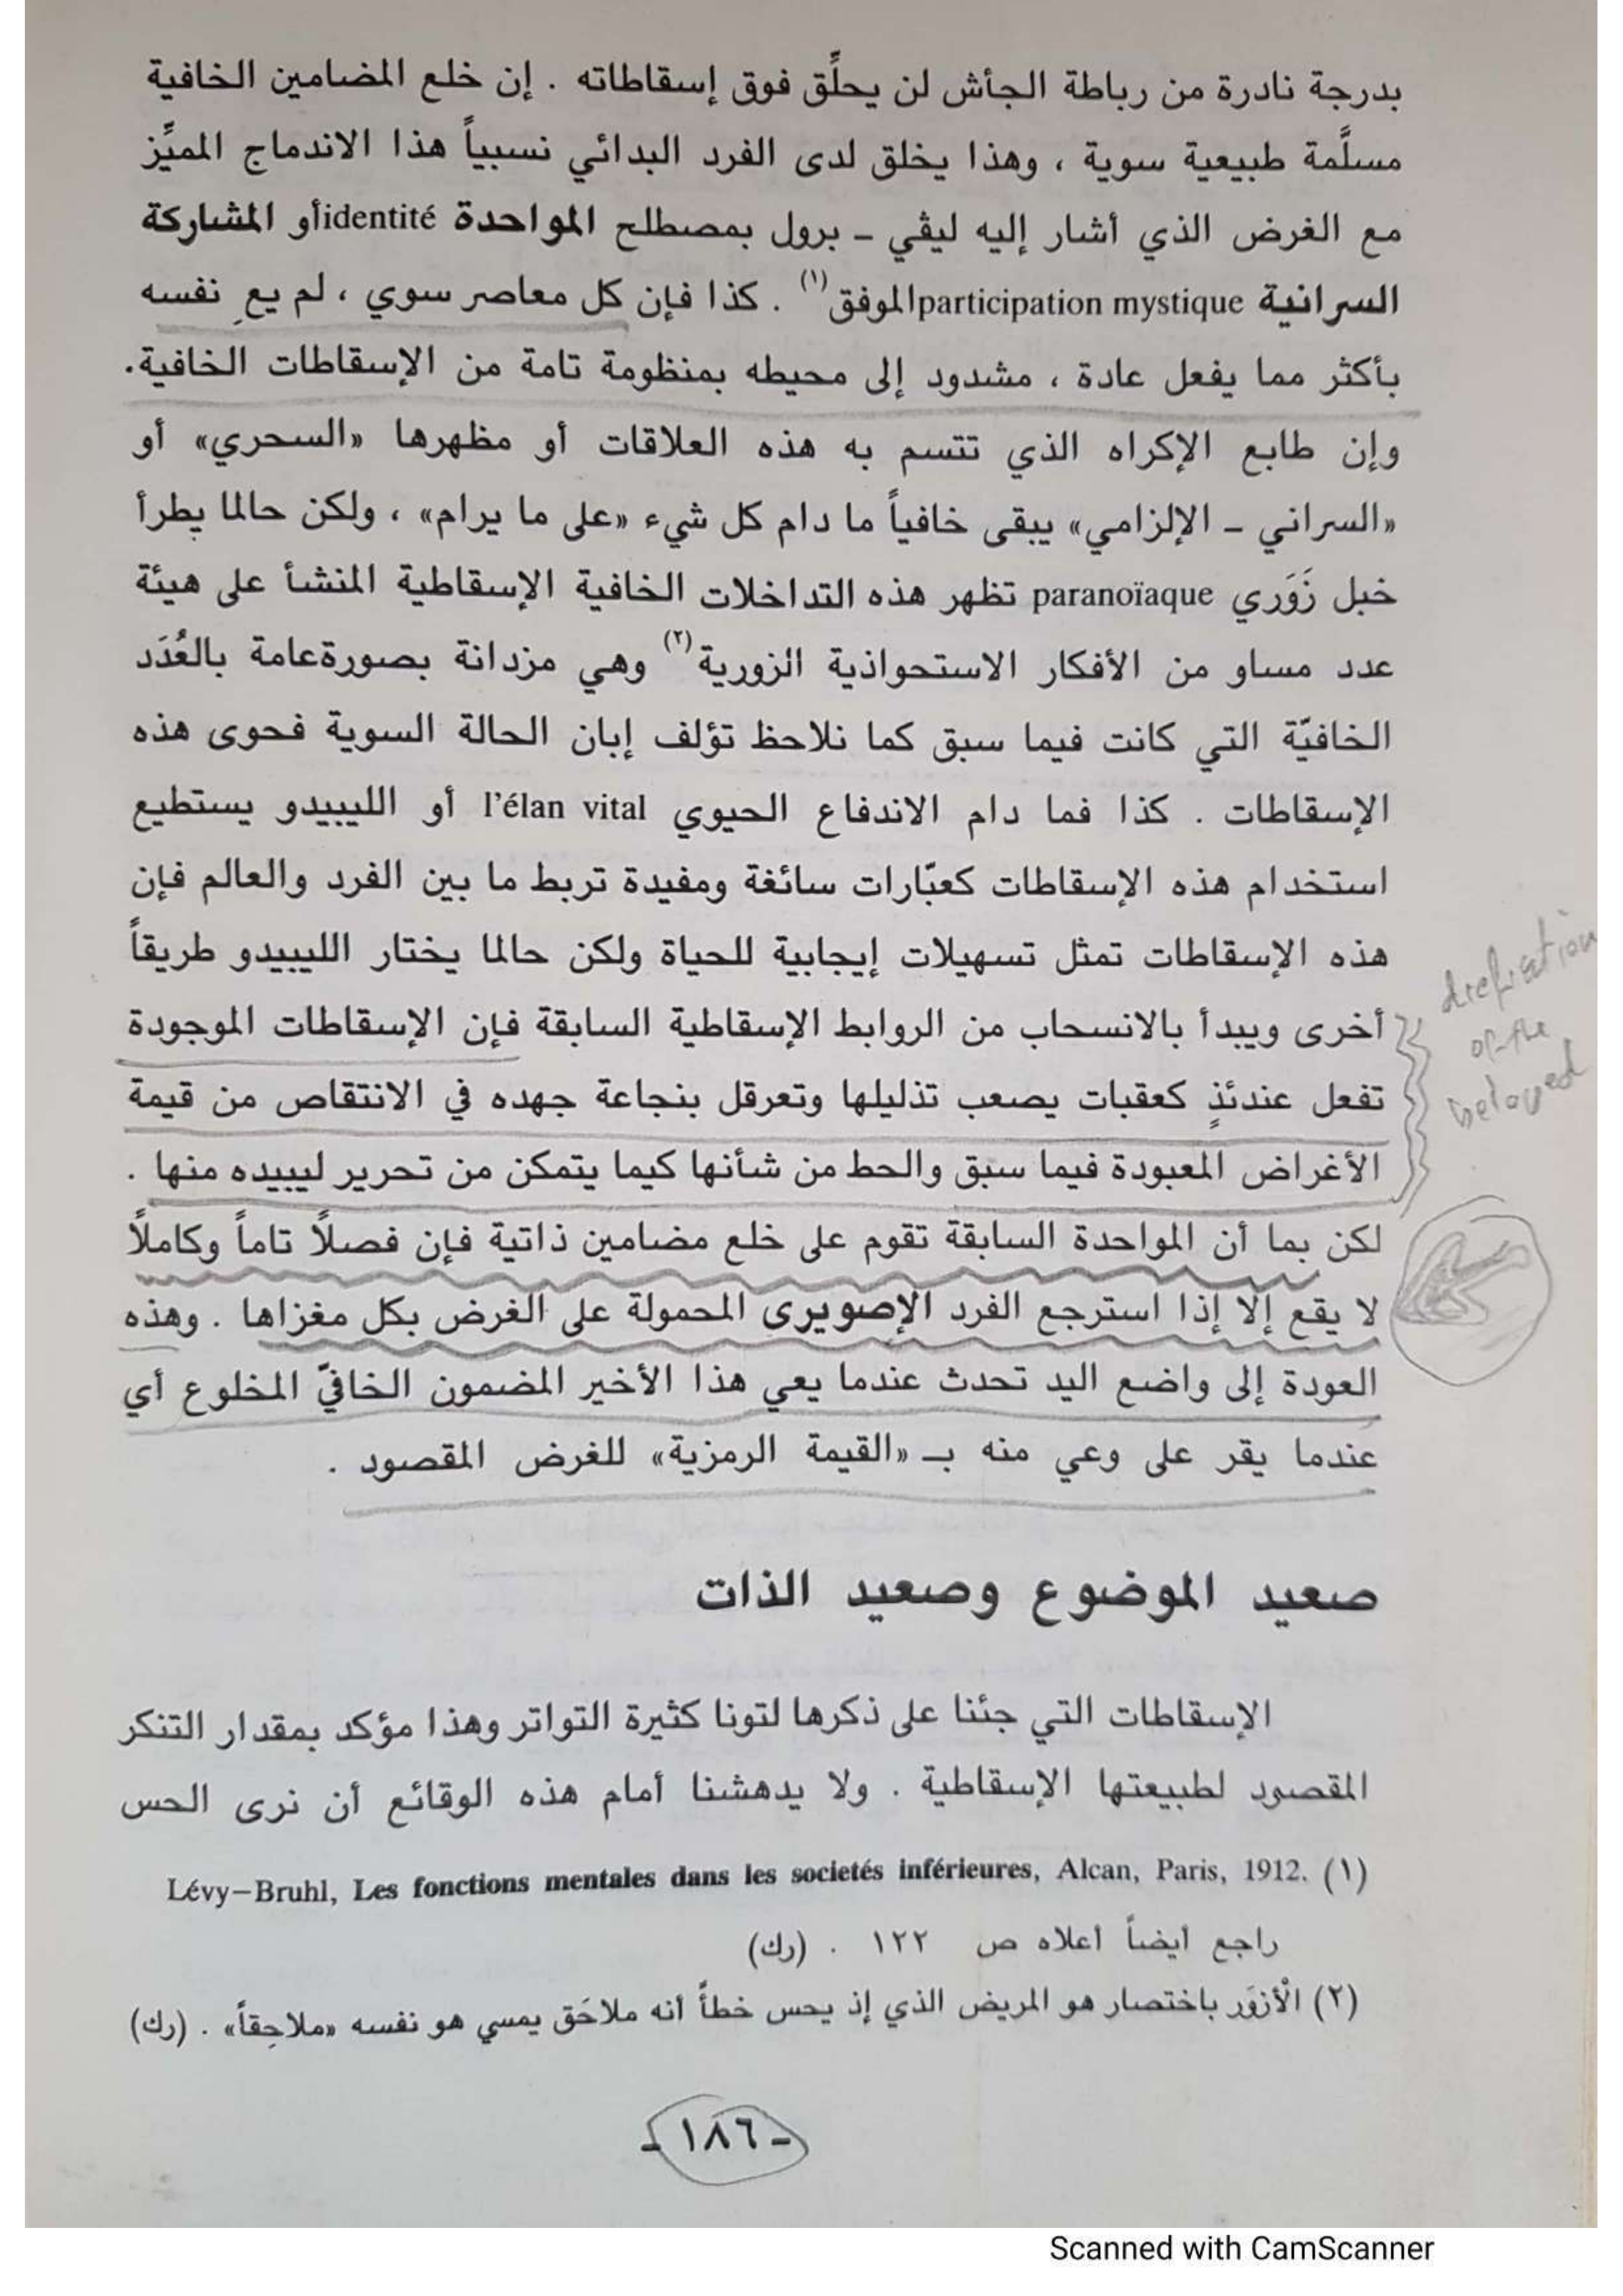 بدرجة نادرة من رباطة الجأش لن يحلِّق فوق إسقاطاته . إن خلع المضامين الخافية
مسلَّمة طبيعية سوية ، وهذا يخلق لدى الفرد البدائي نسبياً هذا الاندماج المميِّز
مع الغرض الذي أشار إليه ليڤي ــ برول بمصطلح المواحدة identité أو المشاركة
السرانية participation mystique الموفق(١) . كذا فإن كل معاصر سوي ، لم يعِ نفسه
بأكثر مما يفعل عادة ، مشدود إلى محيطه بمنظومة تامة من الإسقاطات الخافية.
وإن طابع الإكراه الذي تتسم به هذه العلاقات أو مظهرها «السحري» أو
«السراني ــ الإلزامي» يبقى خافياً ما دام كل شيء «على ما يرام» ، ولكن حالما يطرأ
خبل زَوَري paranoïaque تظهر هذه التداخلات الخافية الإسقاطية المنشأ على هيئة
عدد مساو من الأفكار الاستحواذية الزورية(٢) وهي مزدانة بصورة عامة بالعُدَد
الخافيّة التي كانت فيما سبق كما نلاحظ تؤلف إبان الحالة السوية فحوى هذه
الإسقاطات . كذا فما دام الاندفاع الحيوي l'élan vital أو الليبيدو يستطيع
استخدام هذه الإسقاطات كعبّارات سائغة ومفيدة تربط ما بين الفرد والعالم فإن
هذه الإسقاطات تمثل تسهيلات إيجابية للحياة ولكن حالما يختار الليبيدو طريقاً
أخرى ويبدأ بالانسحاب من الروابط الإسقاطية السابقة فإن الإسقاطات الموجودة
تفعل عندئذٍ كعقبات يصعب تذليلها وتعرقل بنجاعة جهده في الانتقاص من قيمة
الأغراض المعبودة فيما سبق والحط من شأنها كيما يتمكن من تحرير ليبيده منها .
of the
beloved
لكن بما أن المواحدة السابقة تقوم على خلع مضامين ذاتية فإن فصلاً تاماً وكاملاً
لا يقع إلا إذا استرجع الفرد الإصويرى المحمولة على الغرض بكل مغزاها . وهذه
العودة إلى واضع اليد تحدث عندما يعي هذا الأخير المضمون الخافيّ المخلوع أي
عندما يقر على وعي منه بـ «القيمة الرمزية» للغرض المقصود .
صعيد الموضوع وصعيد الذات
الإسقاطات التي جئنا على ذكرها لتونا كثيرة التواتر وهذا مؤكد بمقدار التنكر
المقصود لطبيعتها الإسقاطية . ولا يدهشنا أمام هذه الوقائع أن نرى الحس
(١) Lévy–Bruhl, Les fonctions mentales dans les societés inférieures, Alcan, Paris, 1912.
راجع أيضاً أعلاه ص ١٢٢ . (رك)
(٢) الْأزوَر باختصار هو المريض الذي إذ يحس خطأً أنه ملاحَق يمسي هو نفسه «ملاحِقاً» . (رك)
- ١٨٦ -
Scanned with CamScanner